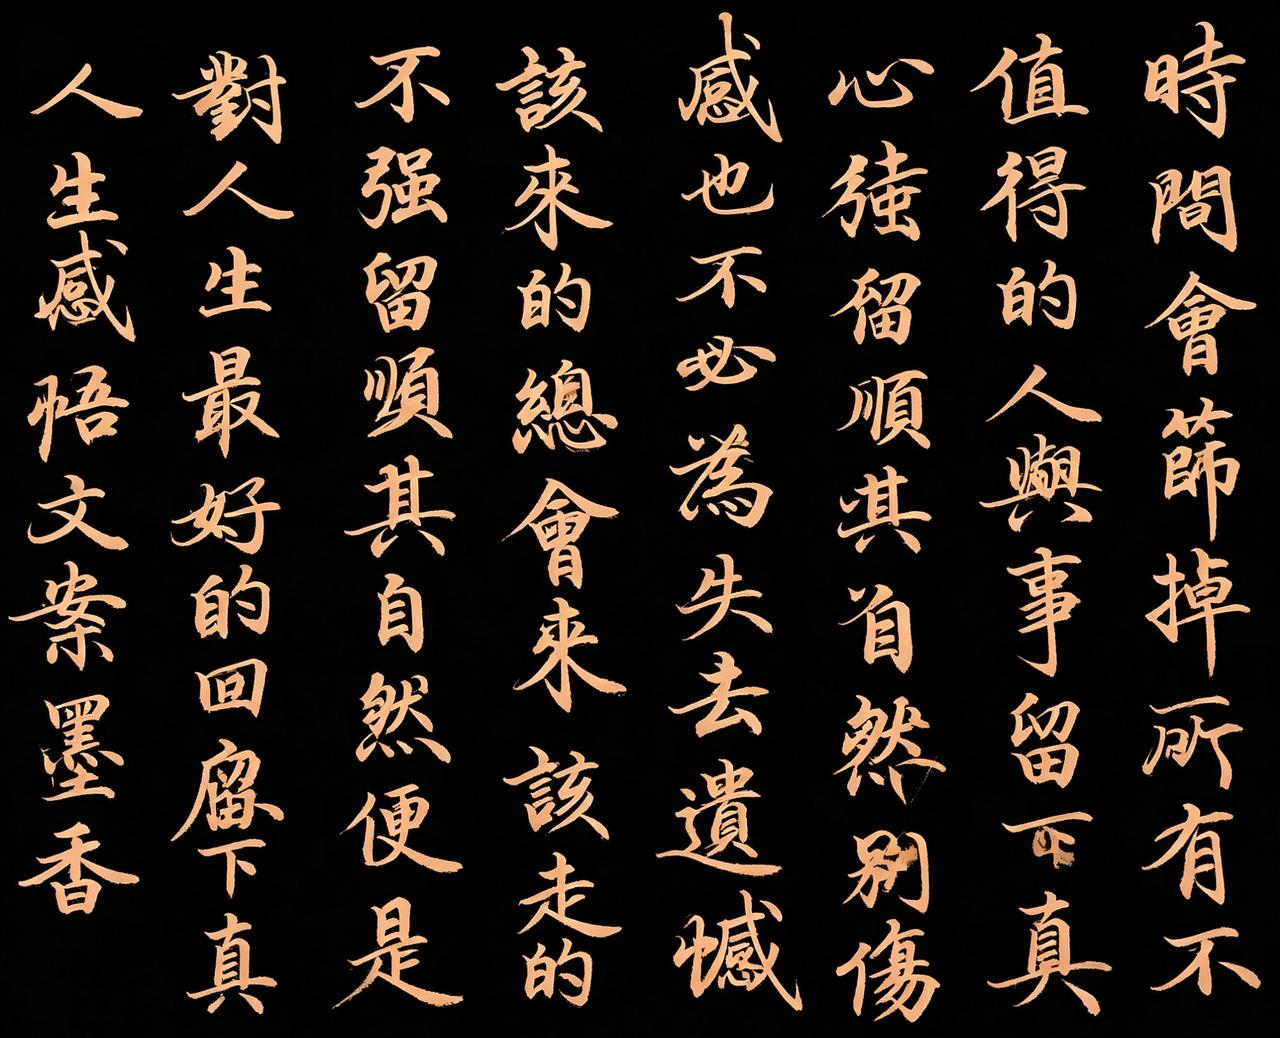 時間會篩掉所有不
值得的人與事留下真
心強留順其自然別傷
感也不必為失去遺憾
該來的總會來該走的
不强留順其自然便是
對人生最好的回留下真
人生感悟文案墨香